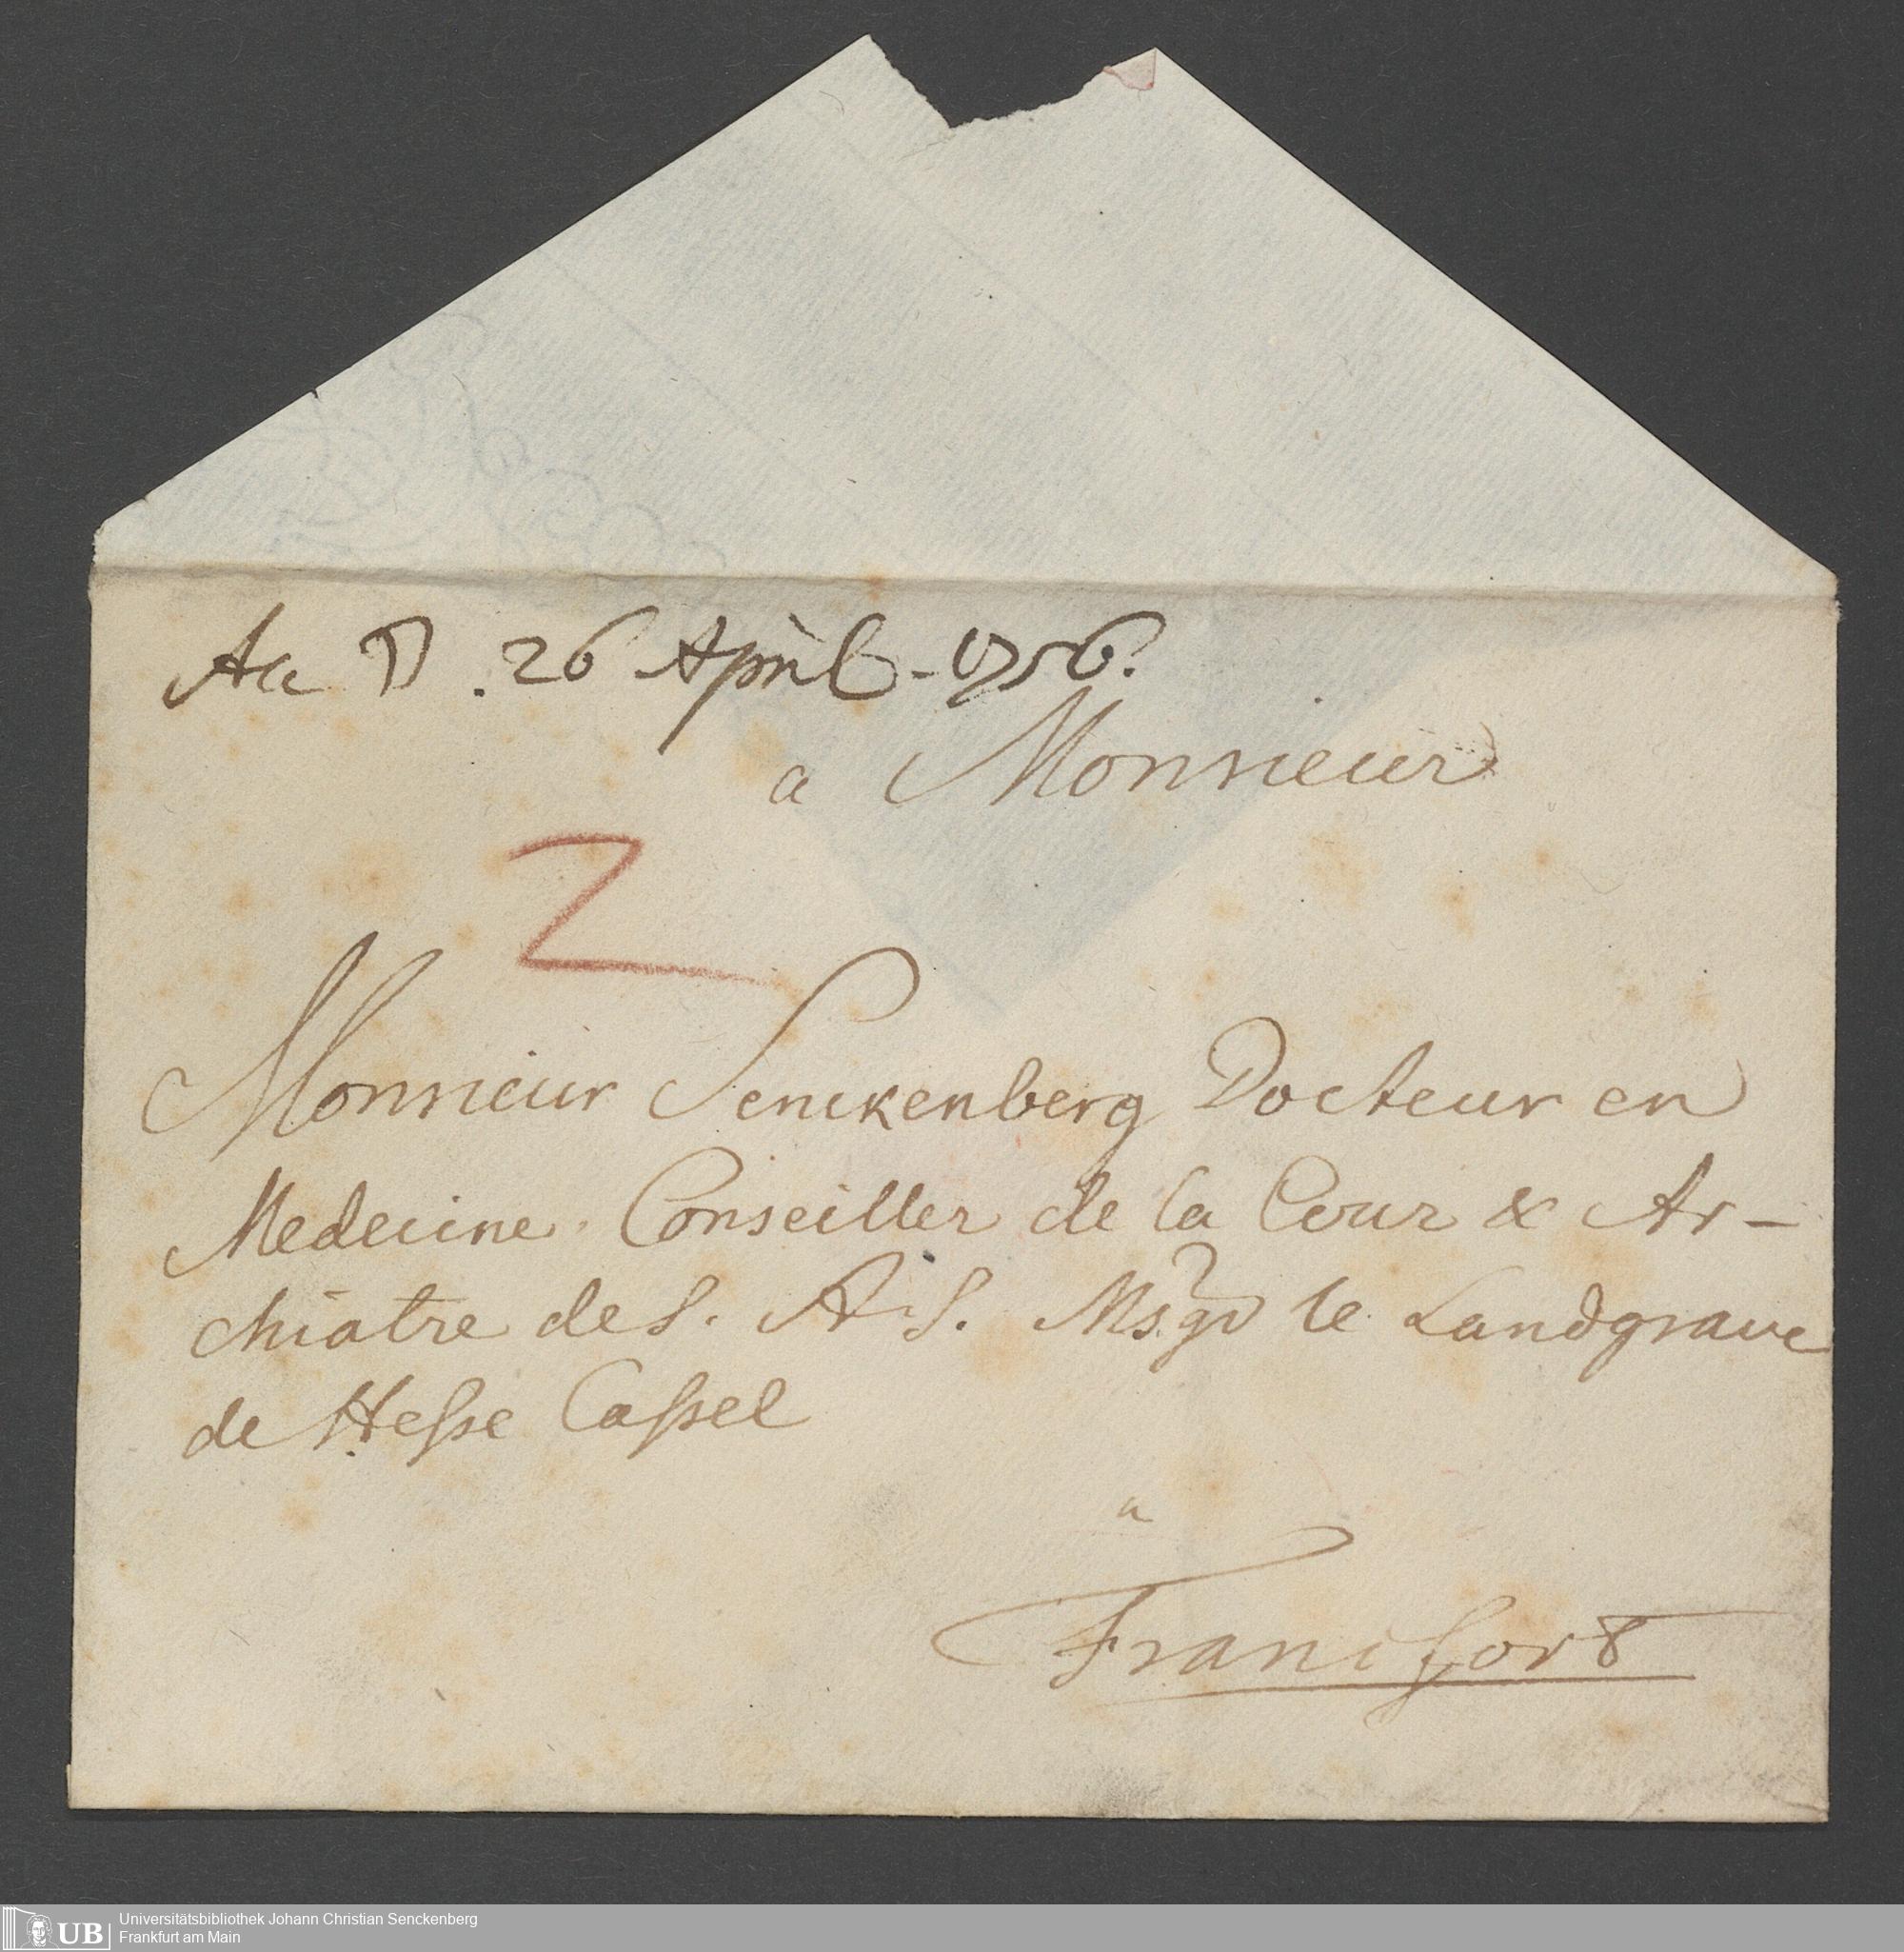 Acc D. 26 April. 1756.
a Monsieur
2
Monsieur Senckenberg Docteur en
Medecine. Conseiller de la Cour & Ar-
chiatre de S. A. S. Msgr le Landgrave
de Hesse Cassel
a
Francfort
UB
Universitätsbibliothek Johann Christian Senckenberg
Frankfurt am Main